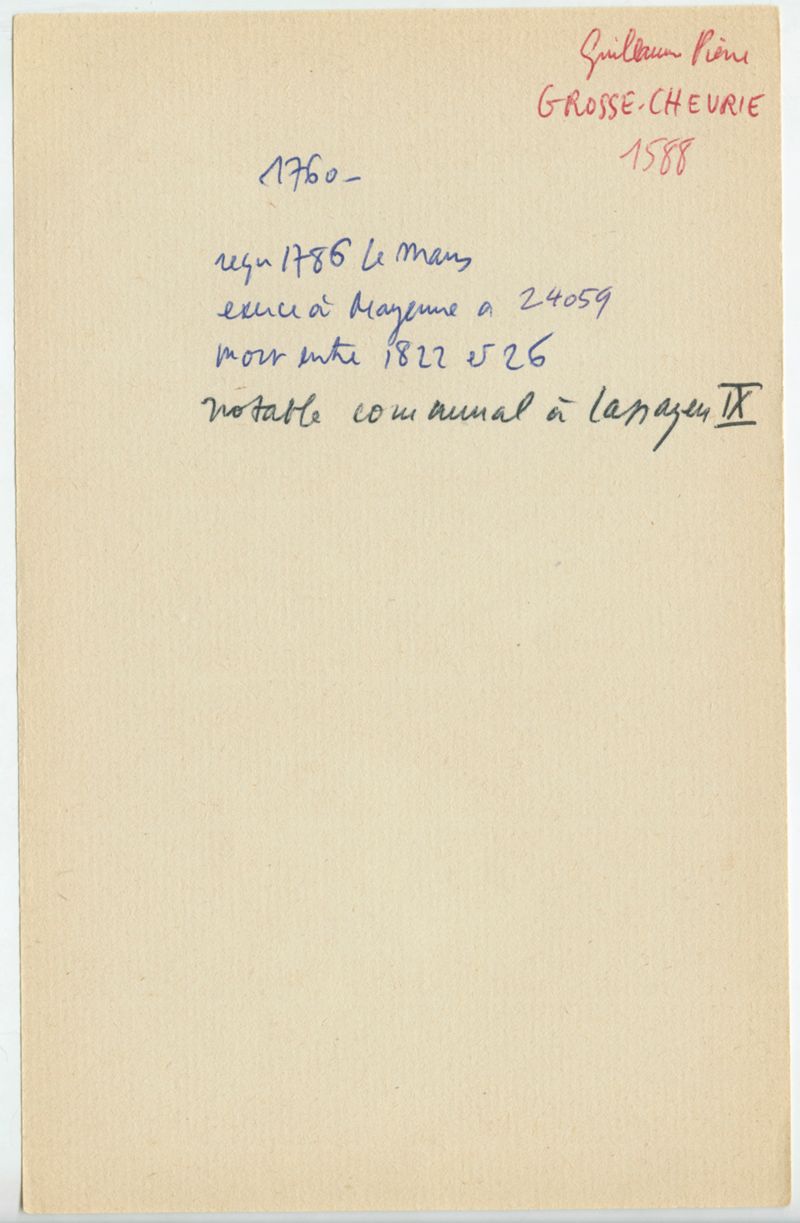 Guillaume Pierre
GROSSE-CHEVRIE
1588
1760-
reçu 1786 Le Mans
exerce à Mayenne a 24059
mort entre 1822 et 26
notable communal à Lassay en IX